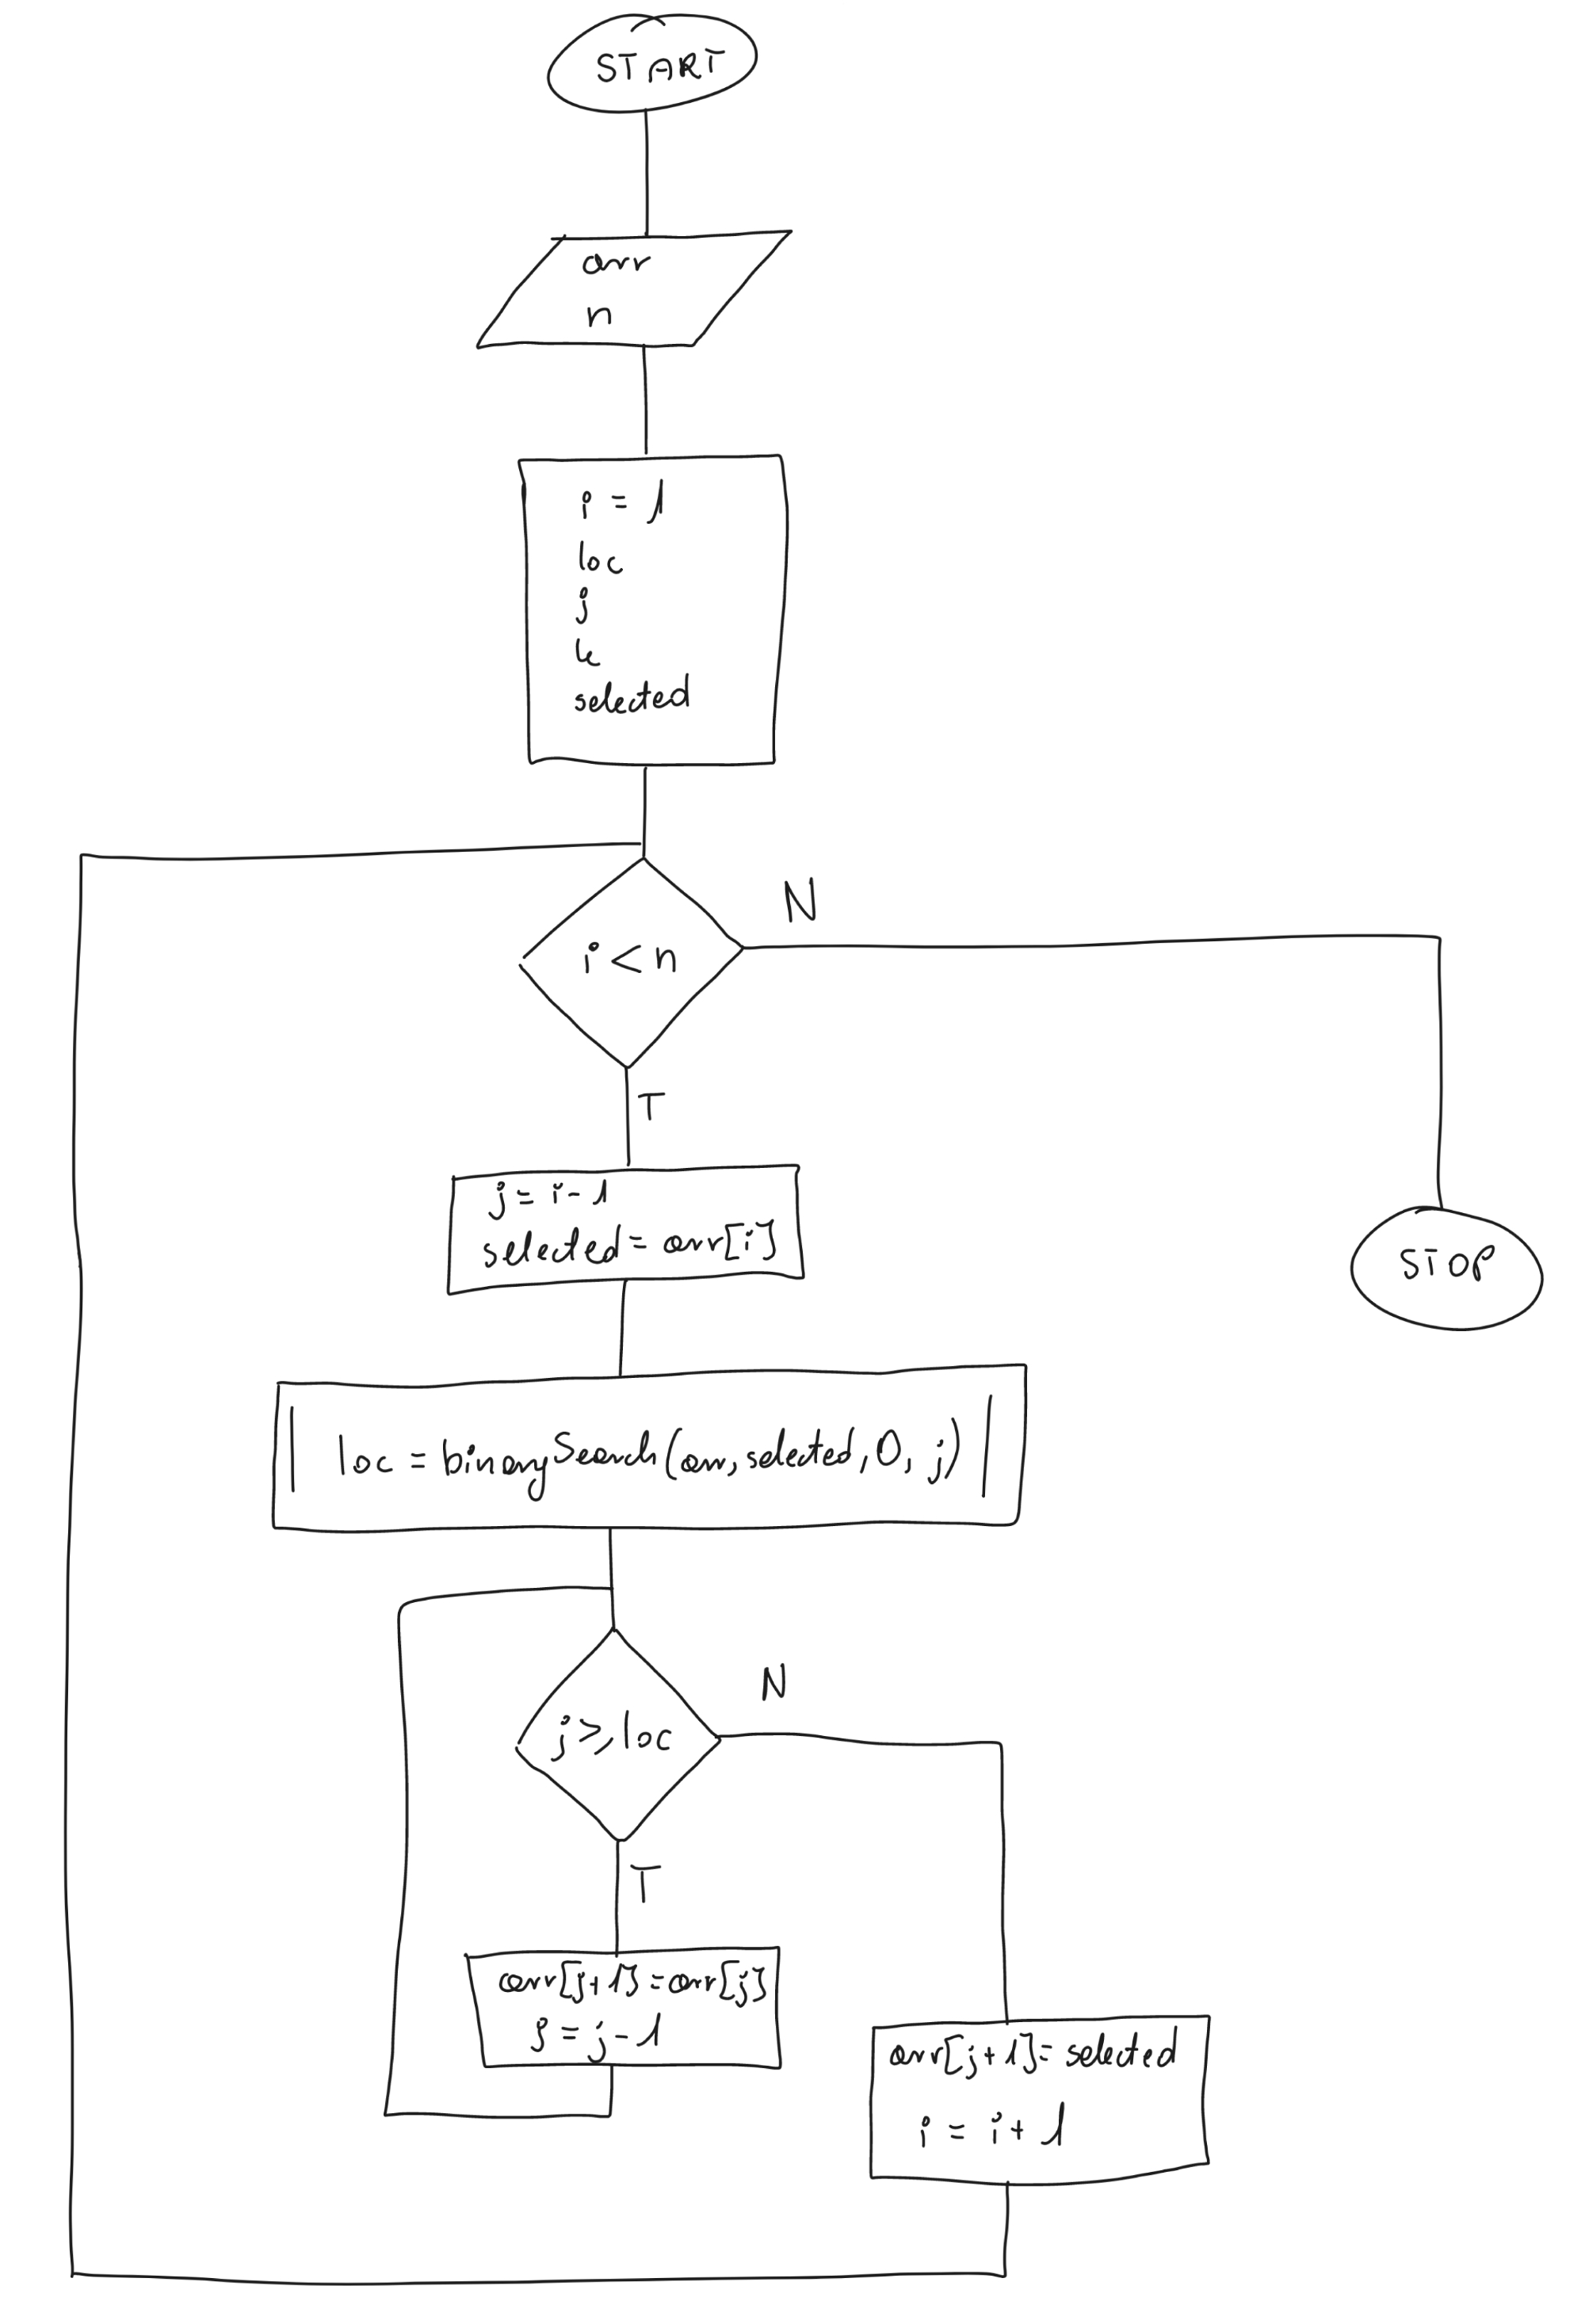 START
arr
n
i = 1
loc
j
k
selected
i < n
N
T
j = i - 1
selected = arr[i]
STOP
loc = binarySearch(arr, selected, 0, j)
j ⩾ loc
N
T
arr[j+1] = arr[j]
j = j - 1
arr[j+1] = selected
i = i + 1